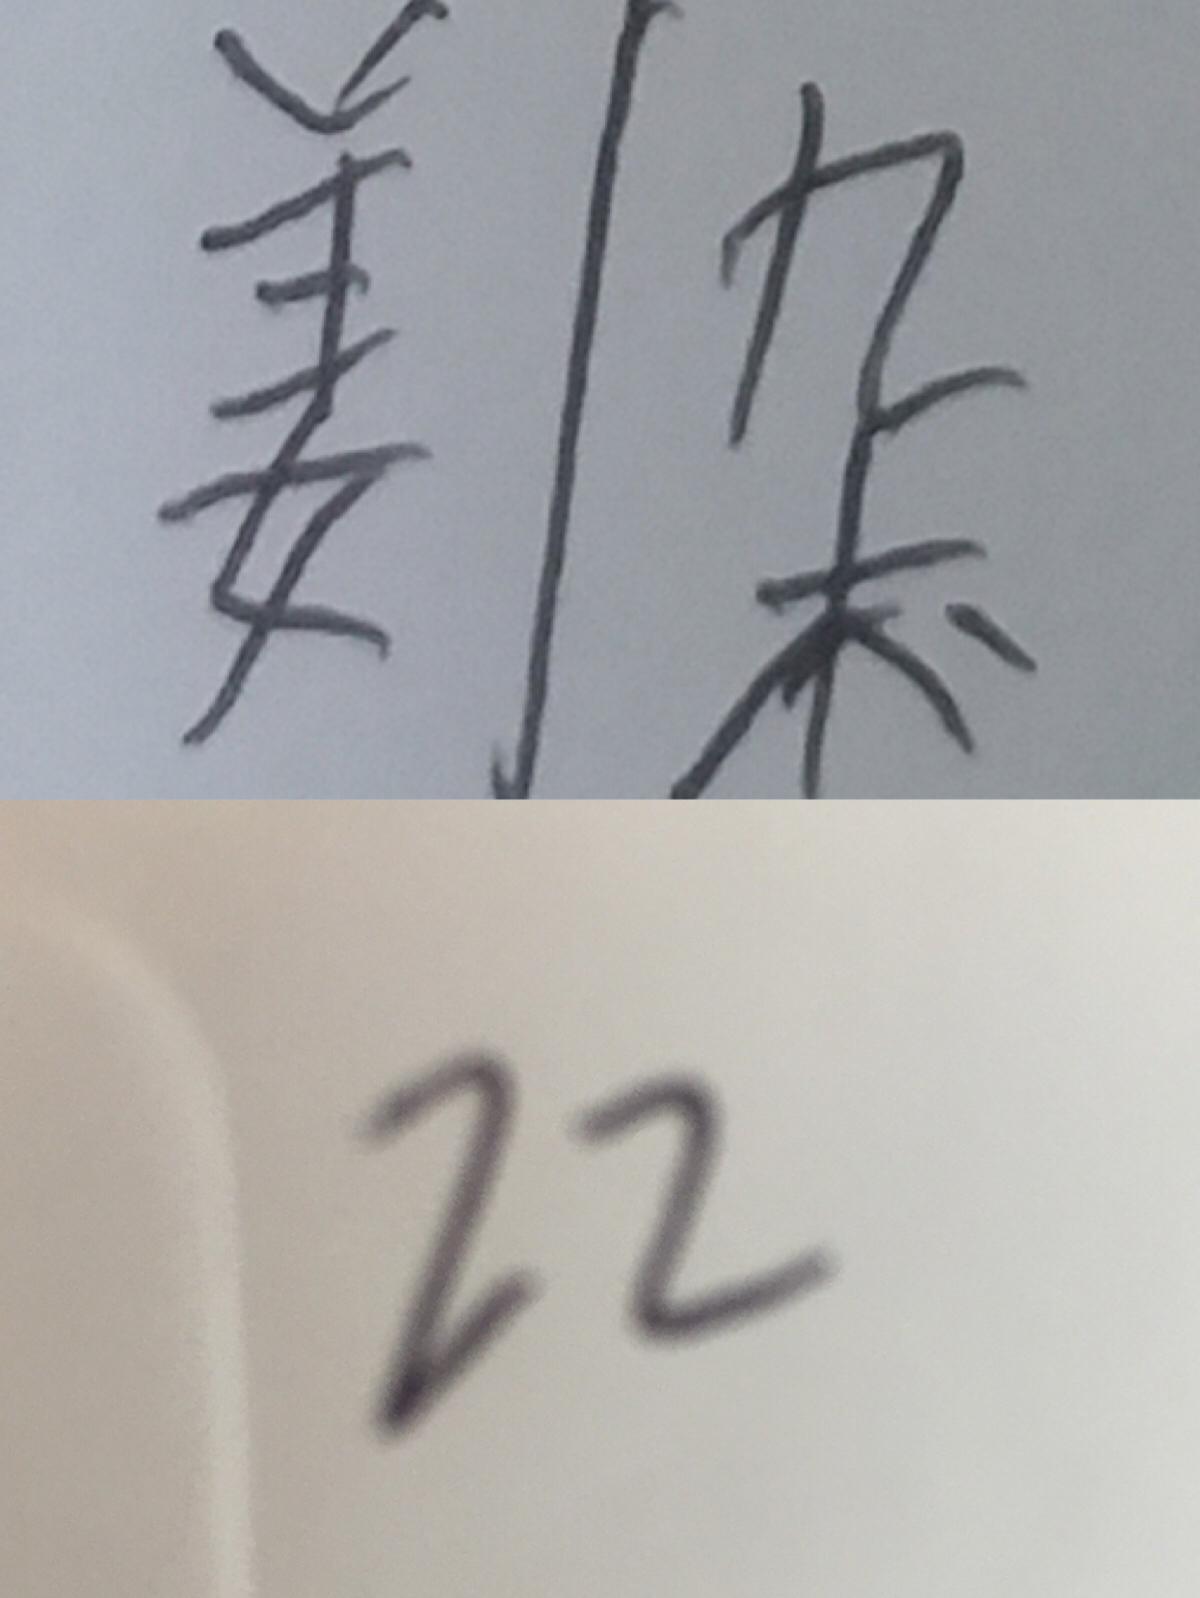 姜|杂
22